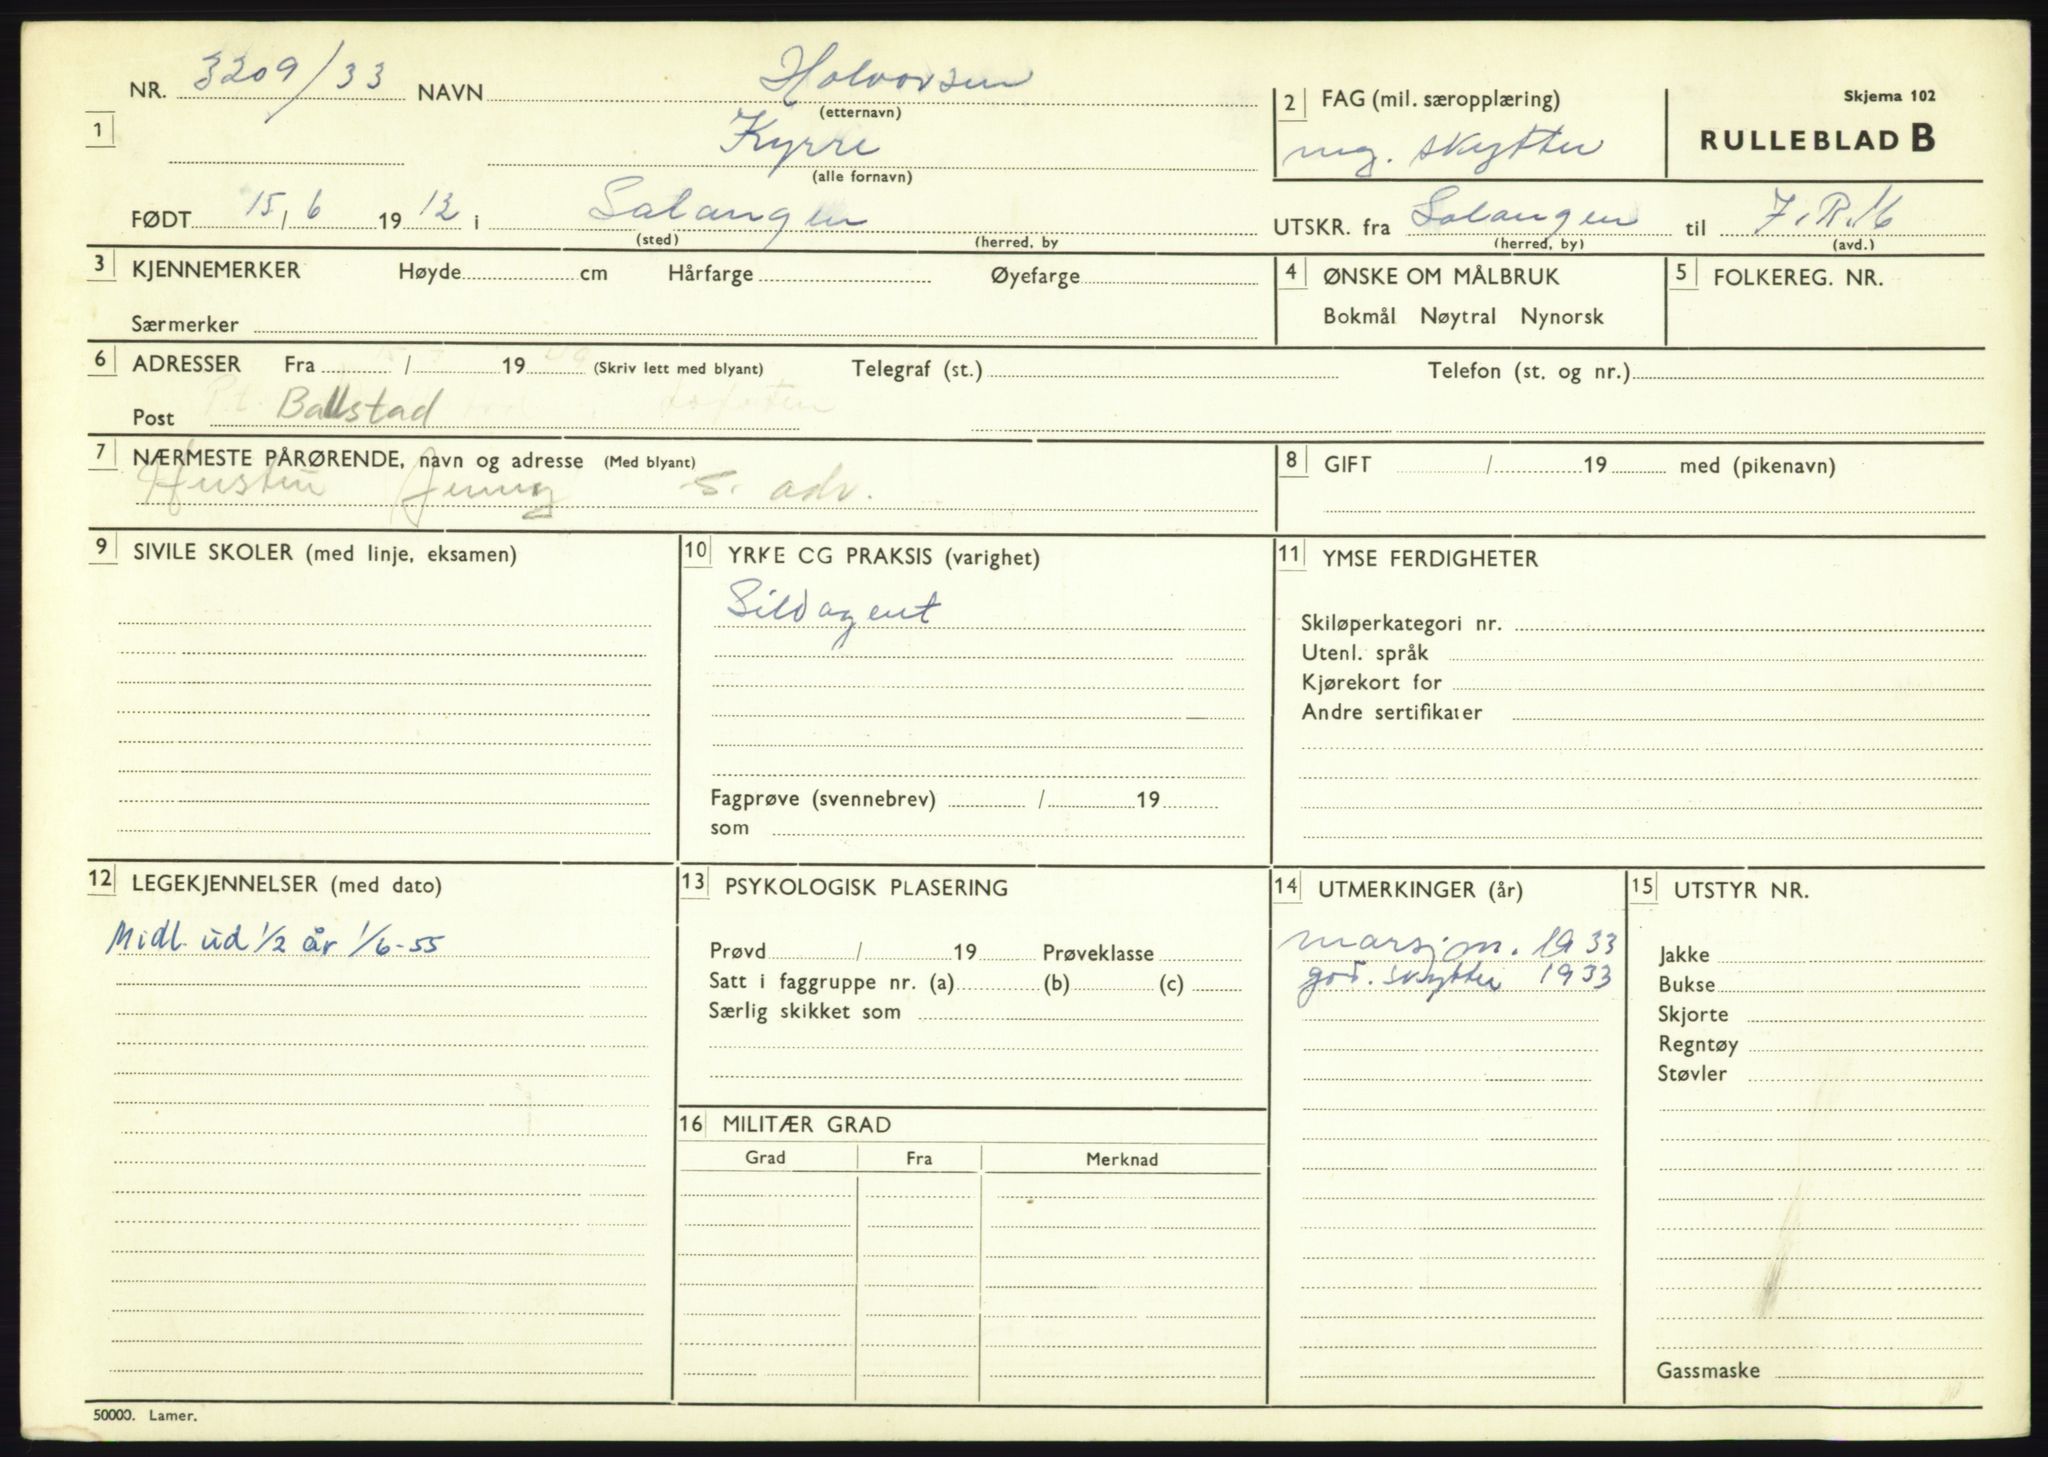 Skjema 102
RULLEBLAD B
NR. 3209/33 NAVN Halvorsen
(etternavn)
1
Kyrre
(alle fornavn)
FØDT 15/6 1912 i Salangen
(sted) (herred, by
2 FAG (mil. særopplæring)
mg. skytter
UTSKR. fra Salangen til 7.R./6
(herred, by) (avd.)
3 KJENNEMERKER Høyde cm Hårfarge Øyefarge
Særmerker
4 ØNSKE OM MÅLBRUK
Bokmål Nøytral Nynorsk
5 FOLKEREG. NR.
6 ADRESSER Fra / 19 (Skriv lett med blyant) Telegraf (st.) Telefon (st. og nr.)
Post Ballstad
7 NÆRMESTE PÅRØRENDE, navn og adresse (Med blyant)
Hustru Jenny s. adr.
8 GIFT / 19 med (pikenavn)
9 SIVILE SKOLER (med linje, eksamen)
10 YRKE CG PRAKSIS (varighet)
Sildagent
Fagprøve (svennebrev) / 19
som
11 YMSE FERDIGHETER
Skiløperkategori nr.
Utenl. språk
Kjørekort for
Andre sertifikater
12 LEGEKJENNELSER (med dato)
Midl. ud 1/2 år 1/6-55
13 PSYKOLOGISK PLASERING
Prøvd / 19 Prøveklasse
Satt i faggruppe nr. (a) (b) (c)
Særlig skikket som
14 UTMERKINGER (år)
marsjm. 1933
god. skytter 1933
15 UTSTYR NR.
Jakke
Bukse
Skjorte
Regntøy
Støvler
Gassmaske
16 MILITÆR GRAD
Grad Fra Merknad
50000. Lamer.